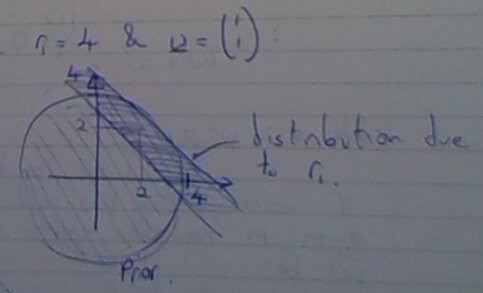 r₁ = 4 & u = (1 1) :
4
2
distribution due
to r₁.
2
4
Prior.